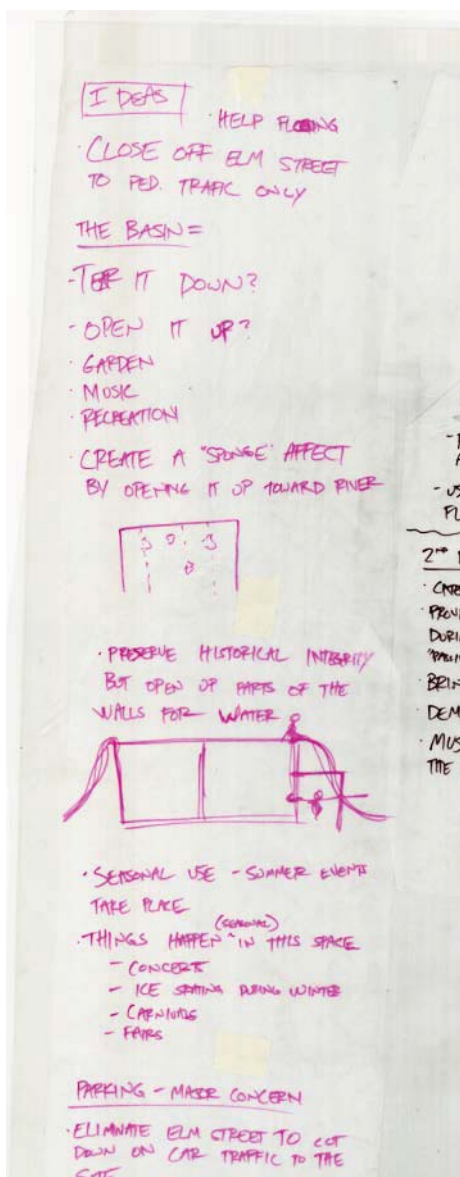 IDEAS
· HELP
· CLOSE OFF ELM STREET
TO PED. TRAFIC ONLY
THE BASIN =
- IT DOWN?
- OPEN IT UP?
· GARDEN
· MUSIC
· RECREATION
· CREATE A "SPONGE" AFFECT
BY OPENING IT UP TOWARD RIVER
· PRESERVE HISTORICAL INTEGRITY
BUT OPEN UP PARTS OF THE
WALLS FOR WATER
· SEASONAL USE - SUMMER EVENTS
TAKE PLACE
(SEASONAL)
· THINGS HAPPEN ^ IN THIS SPACE
- CONCERTS
- ICE SKATING DURING WINTER
- CARNIVALS
- FAIRS
PARKING - MAJOR CONCERN
· ELIMINATE ELM STREET TO CUT
DOWN ON CAR TRAFFIC TO THE
SITE
- US
FL
2ND
· CATE
· PROVI
DURI
· BRIN
· DEM
· MUS
THE